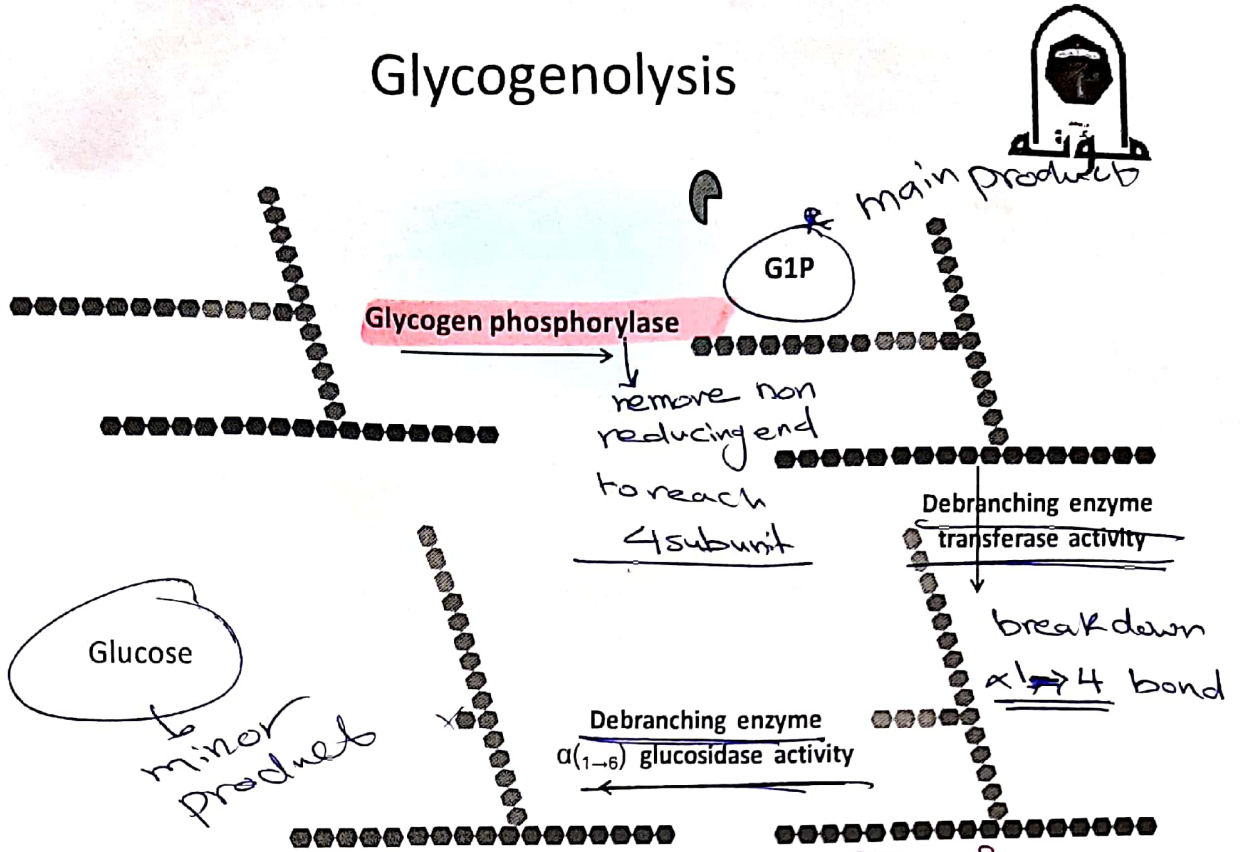 Glycogenolysis
main product
G1P
Glycogen phosphorylase
remove non
reducing end
to reach
4 subunit
Debranching enzyme
transferase activity
breakdown
α1→4 bond
Glucose
minor
product
Debranching enzyme
α(1→6) glucosidase activity